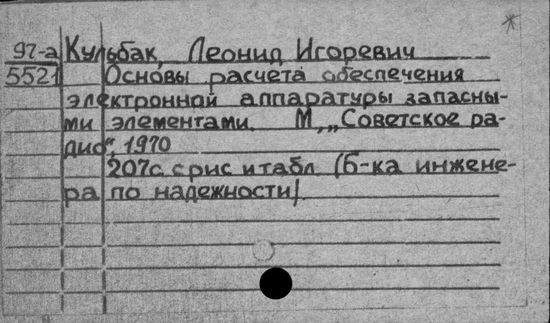 97-а Кульбак, Леонид Игоревич
5521 Основы расчета обеспечения
электронной аппаратуры запасны-
ми элементами. М, „Советское ра-
дио“, 1970
207с. с рис и табл (Б-ка инжене-
ра по надежности).